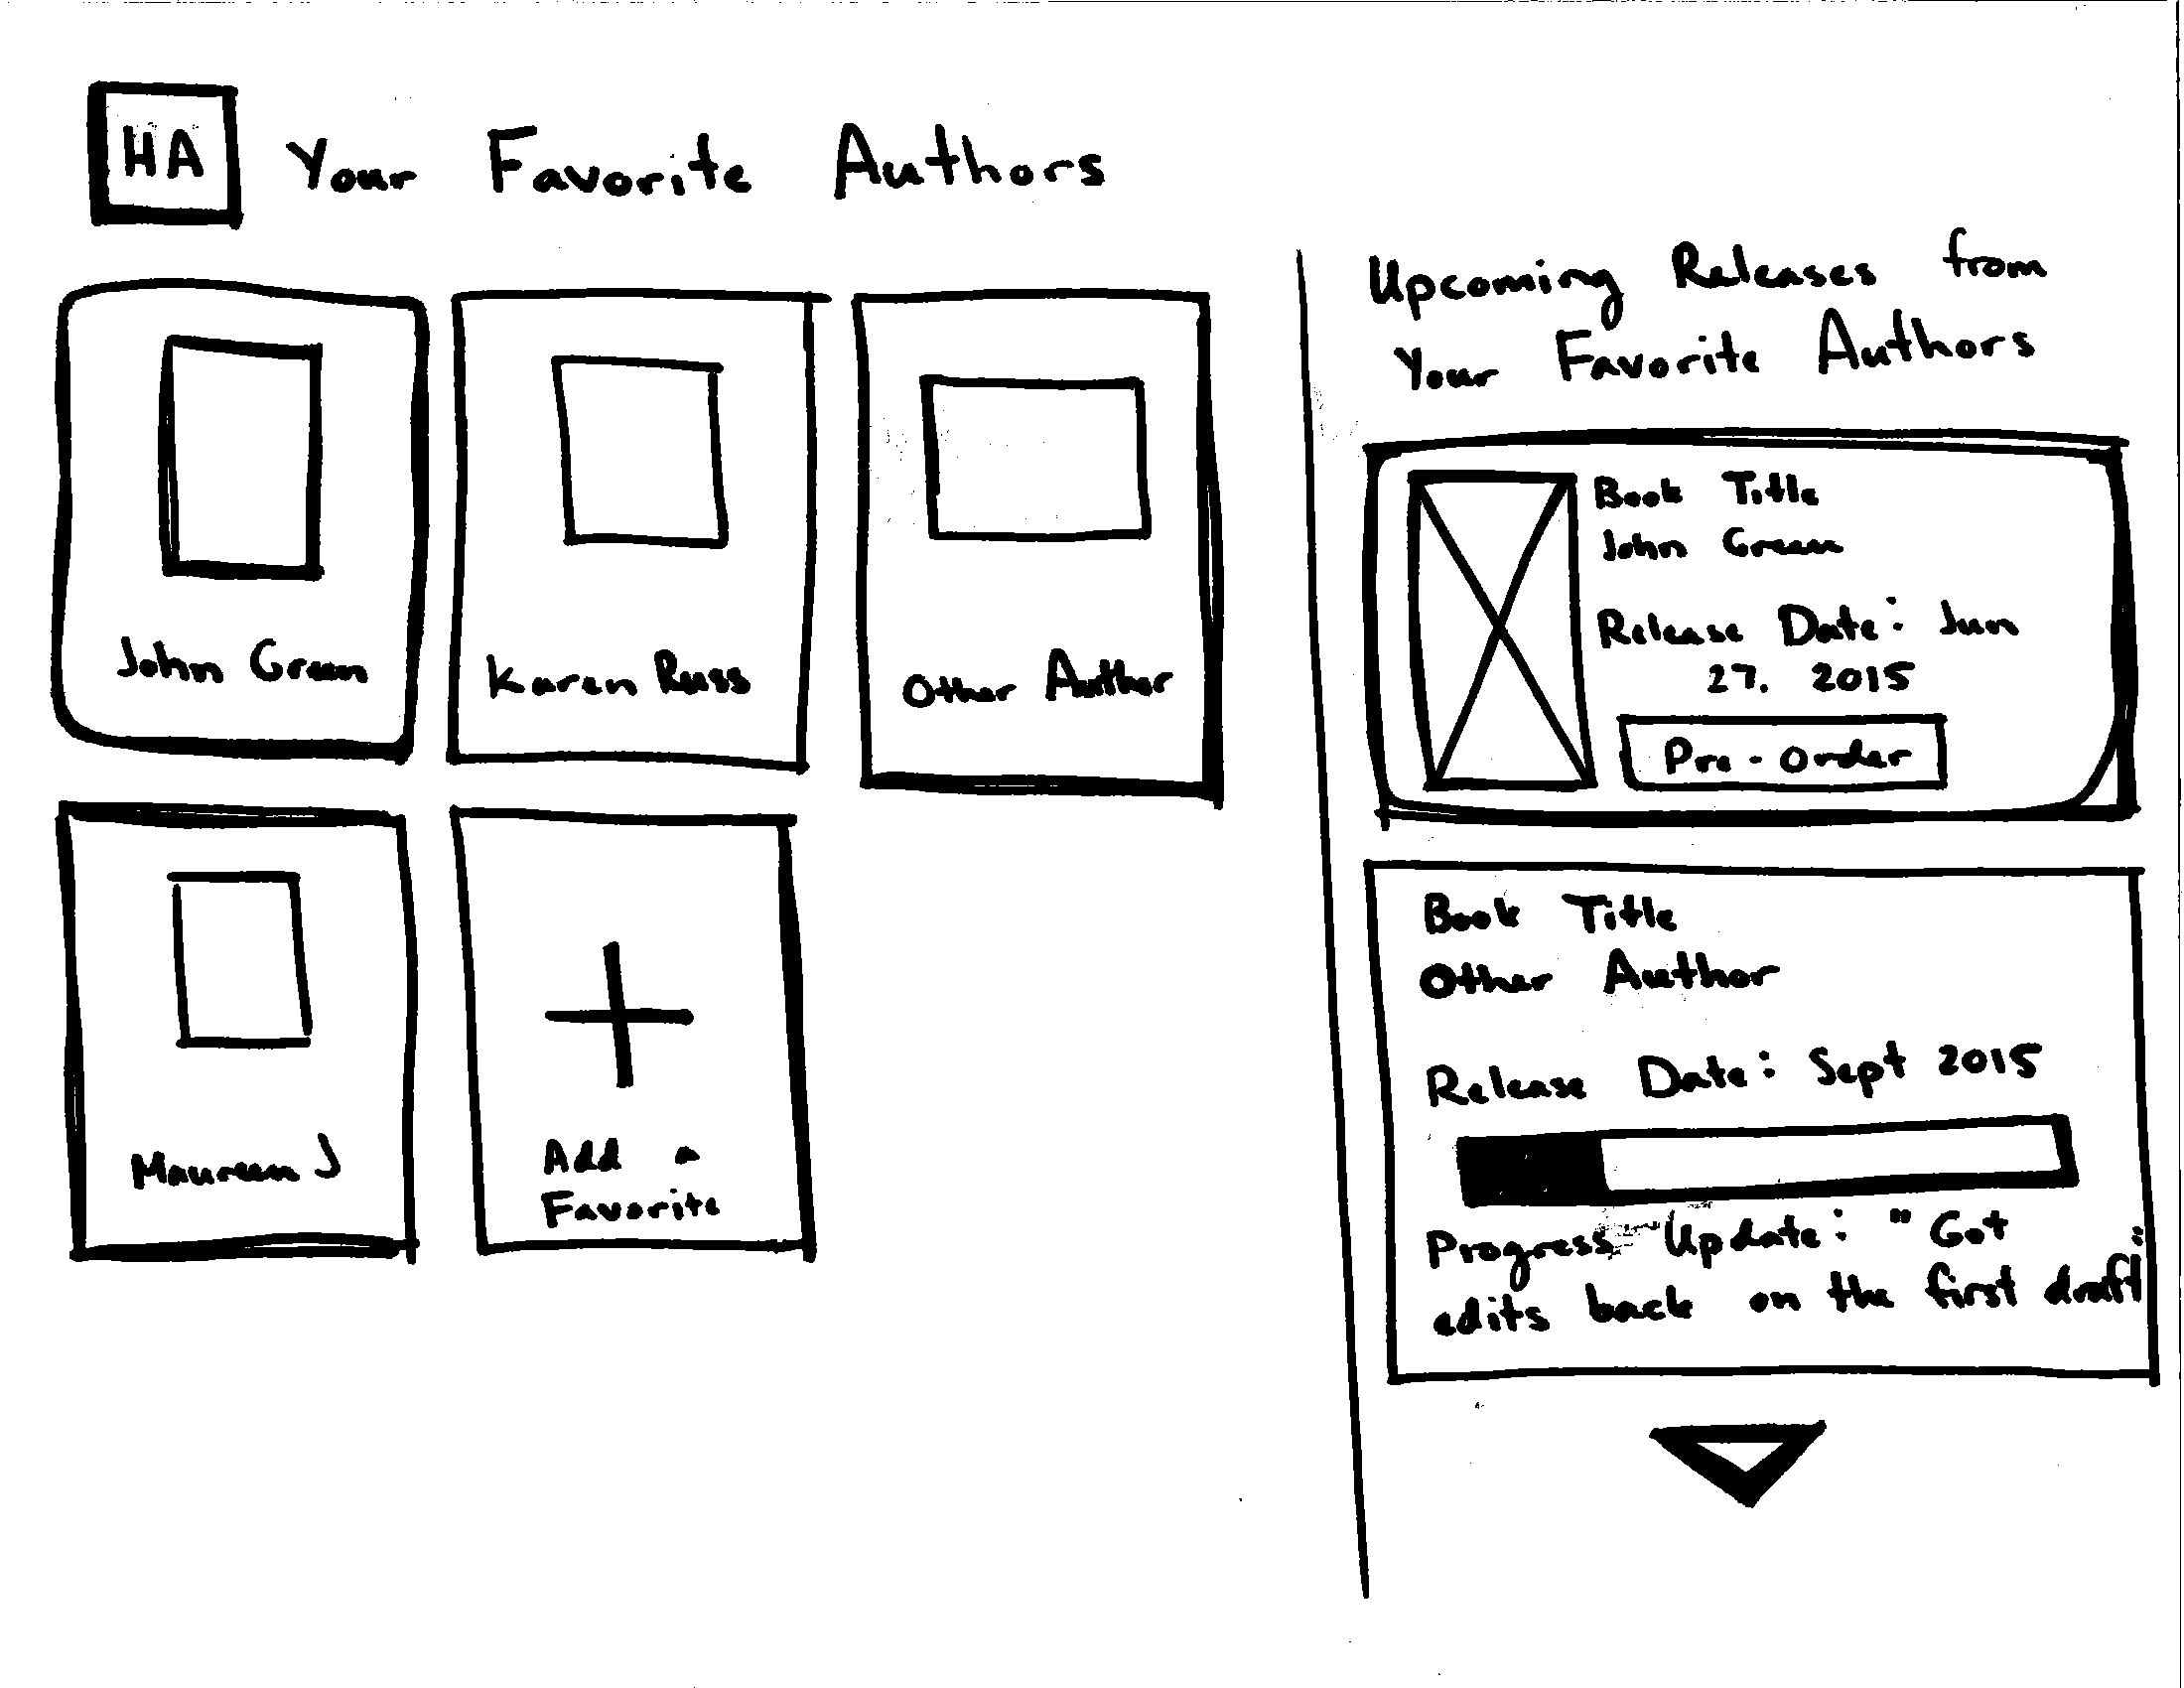 HA
Your Favorite Authors
John Green
Karen Russ
Other Author
Maureen J
Add a
Favorite
Upcoming Releases from
Your Favorite Authors
Book Title
John Green
Release Date: Jun
27. 2015
Pre-order
Book Title
Other Author
Release Date: Sept 2015
Progress Update: "Got
edits back on the first draft"